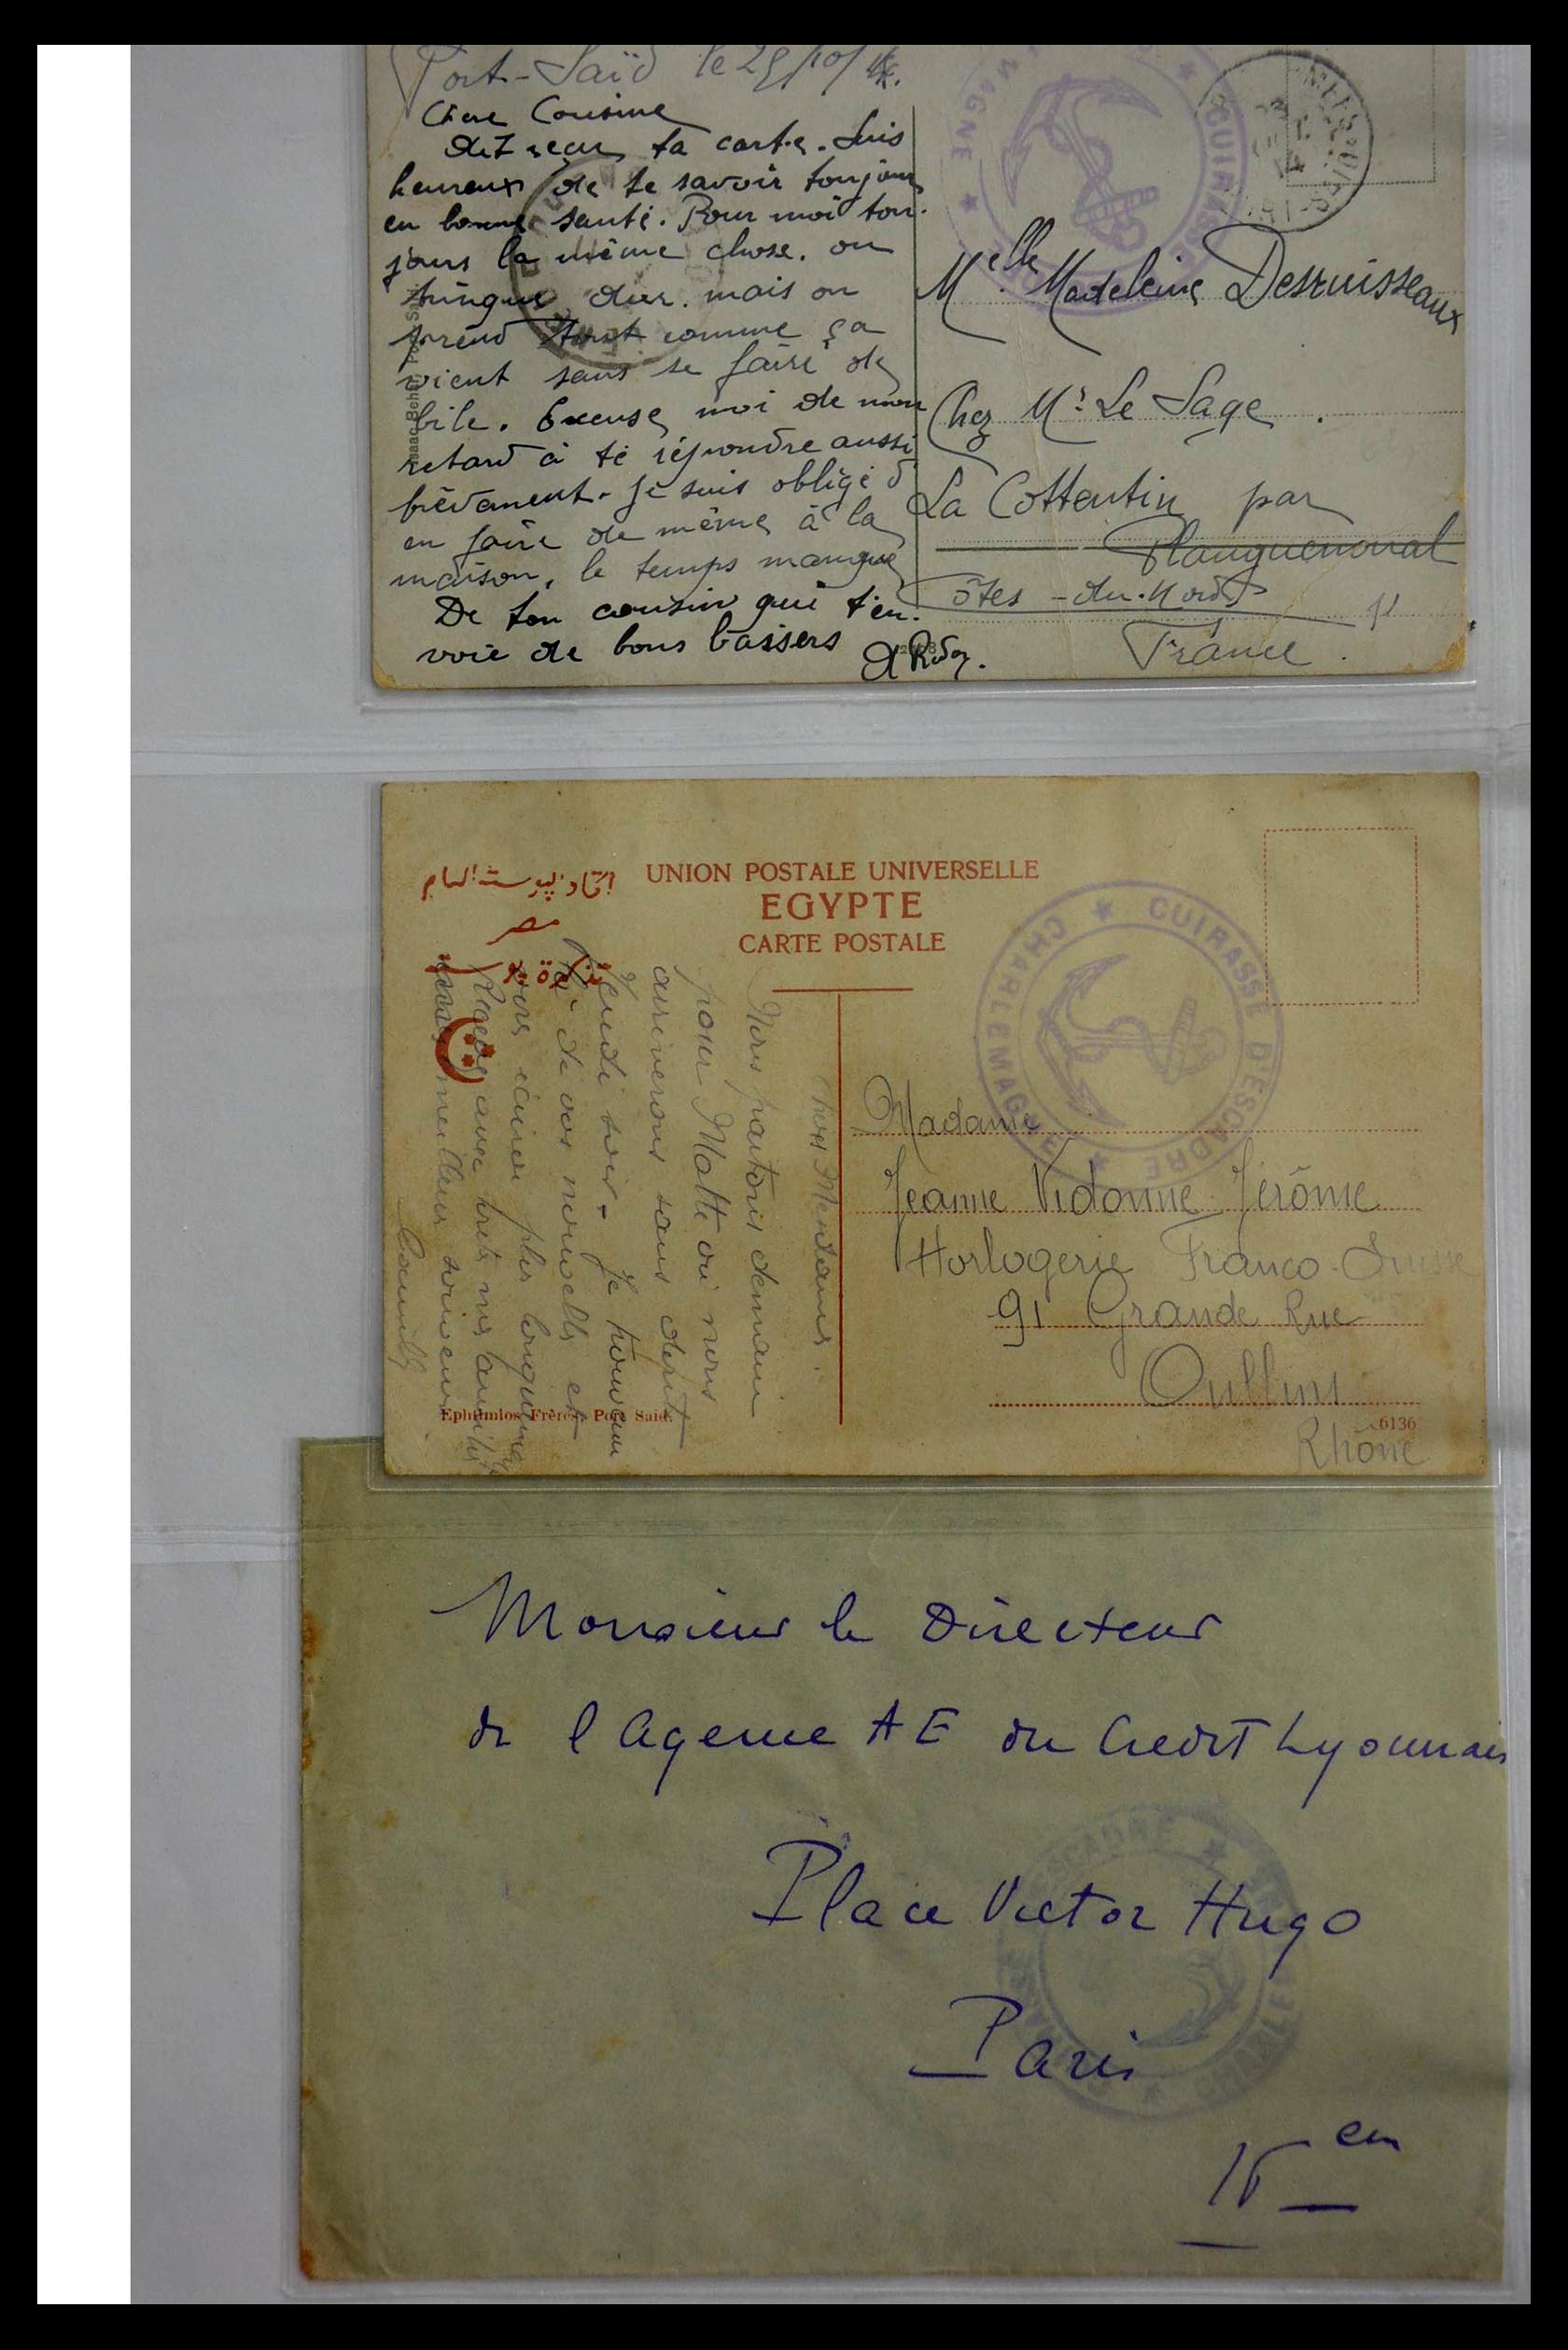 Port-Saïd le 25/10/
Chère Cousine
Ai reçu ta carte. Suis
heureux de te savoir toujours
en bonne santé. Pour moi tou-
jours la même chose. on
tringue dur. mais on
prend tout comme ça
vient sans se faire de
bile. Excuse moi de mon
retard à te répondre aussi
brèvement. Je suis obligé d'
en faire de même à la
maison, le temps manque
De ton cousin qui t'en-
voie de bons baisers
CUIRASSÉ
Melle Madeleine Desruisseaux
Chez Mr Le Sage.
La Cottentin par
Planguenoual
Côtes-du-Nord
France.
اتحاد بوستة العام
مصر
تذكرة بوستة
UNION POSTALE UNIVERSELLE
EGYPTE
CARTE POSTALE
CUIRASSÉ D'ESCADRE ★ CHARLEMAGNE ★
Nous partons demain
pour Malte où nous
arriverons sans doute
Jeudi soir. Je
de vos nouvelles et
vous écrirai plus longuement
avec nos amitiés
meilleurs souvenirs
Madame
Jeanne Vidonne-Jérôme
Horlogerie Franco-Suisse
91 Grande Rue
Oullins
Rhône
Ephtimios Frères, Port Said.
6136
Monsieur le Directeur
de l'Agence AE du Credit Lyonnais
Place Victor Hugo
Paris
ESCADRE ★